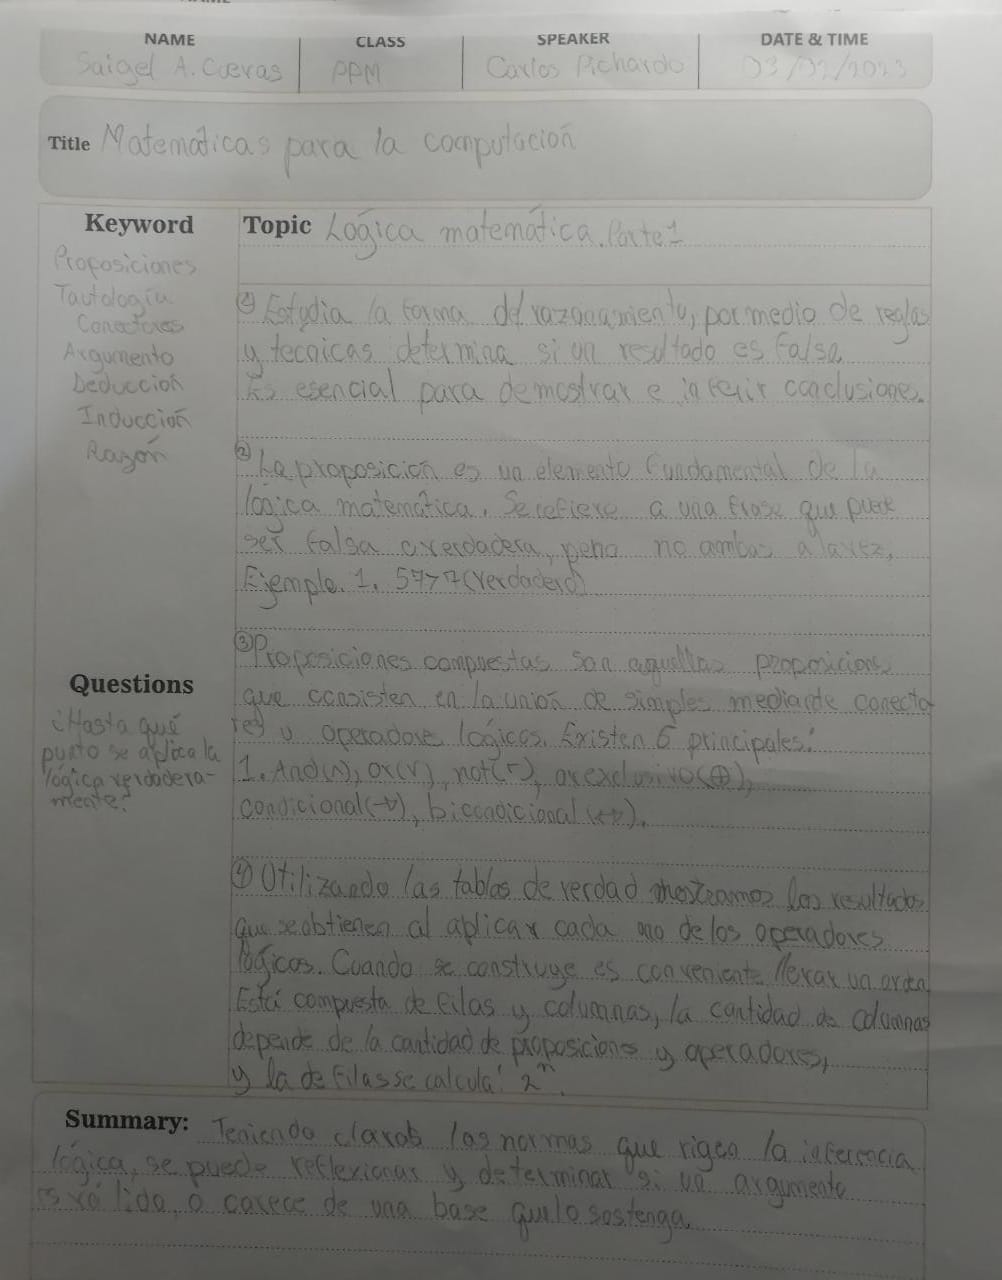 NAME
CLASS
SPEAKER
DATE & TIME
Saigel A. Cuevas
PPM
Carlos Pichardo
03/02/2023
Title Matemáticas para la computación
Keyword
Proposiciones
Tautología
Conectores
Argumento
Deducción
Inducción
Razón
Questions
¿Hasta qué
punto se aplica la
lógica verdadera-
mente?
Topic Lógica matemática. Parte 1
① Estudia la forma del razonamiento, por medio de reglas
y tecnicas determina si un resultado es falso.
Es esencial para demostrar e inferir conclusiones.
② La proposición es un elemento fundamental de la
lógica matemática. Se refiere a una frase que puede
ser falsa o verdadera, pero no ambas a la vez,
Ejemplo. 1. 577>7 (verdadero)
③ Proposiciones compuestas son aquellas proposiciones
que consisten en la unión de simples mediante conecto
res u operadores lógicos. Existen 6 principales:
1. And(∧), or(∨), not(¬), or exclusivo(⊕),
condicional(→), bicondicional(↔).
④ Utilizando las tablas de verdad mostramos los resultados
que se obtienen al aplicar cada uno de los operadores
lógicos. Cuando se construye es conveniente llevar un orden
Está compuesta de filas y columnas, la cantidad de columnas
depende de la cantidad de proposiciones y operadores,
y la de filas se calcula: 2ⁿ.
Summary: Teniendo claros las normas que rigen la inferencia
lógica, se puede reflexionar y determinar si un argumento
es válido, o carece de una base que lo sostenga.